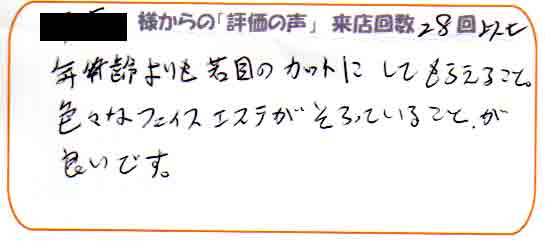 様からの「評価の声」 来店回数28回以上
年齢よりも若目のカットにしてもらえること。
色々なフェイスエステがそろっていること、が
良いです。